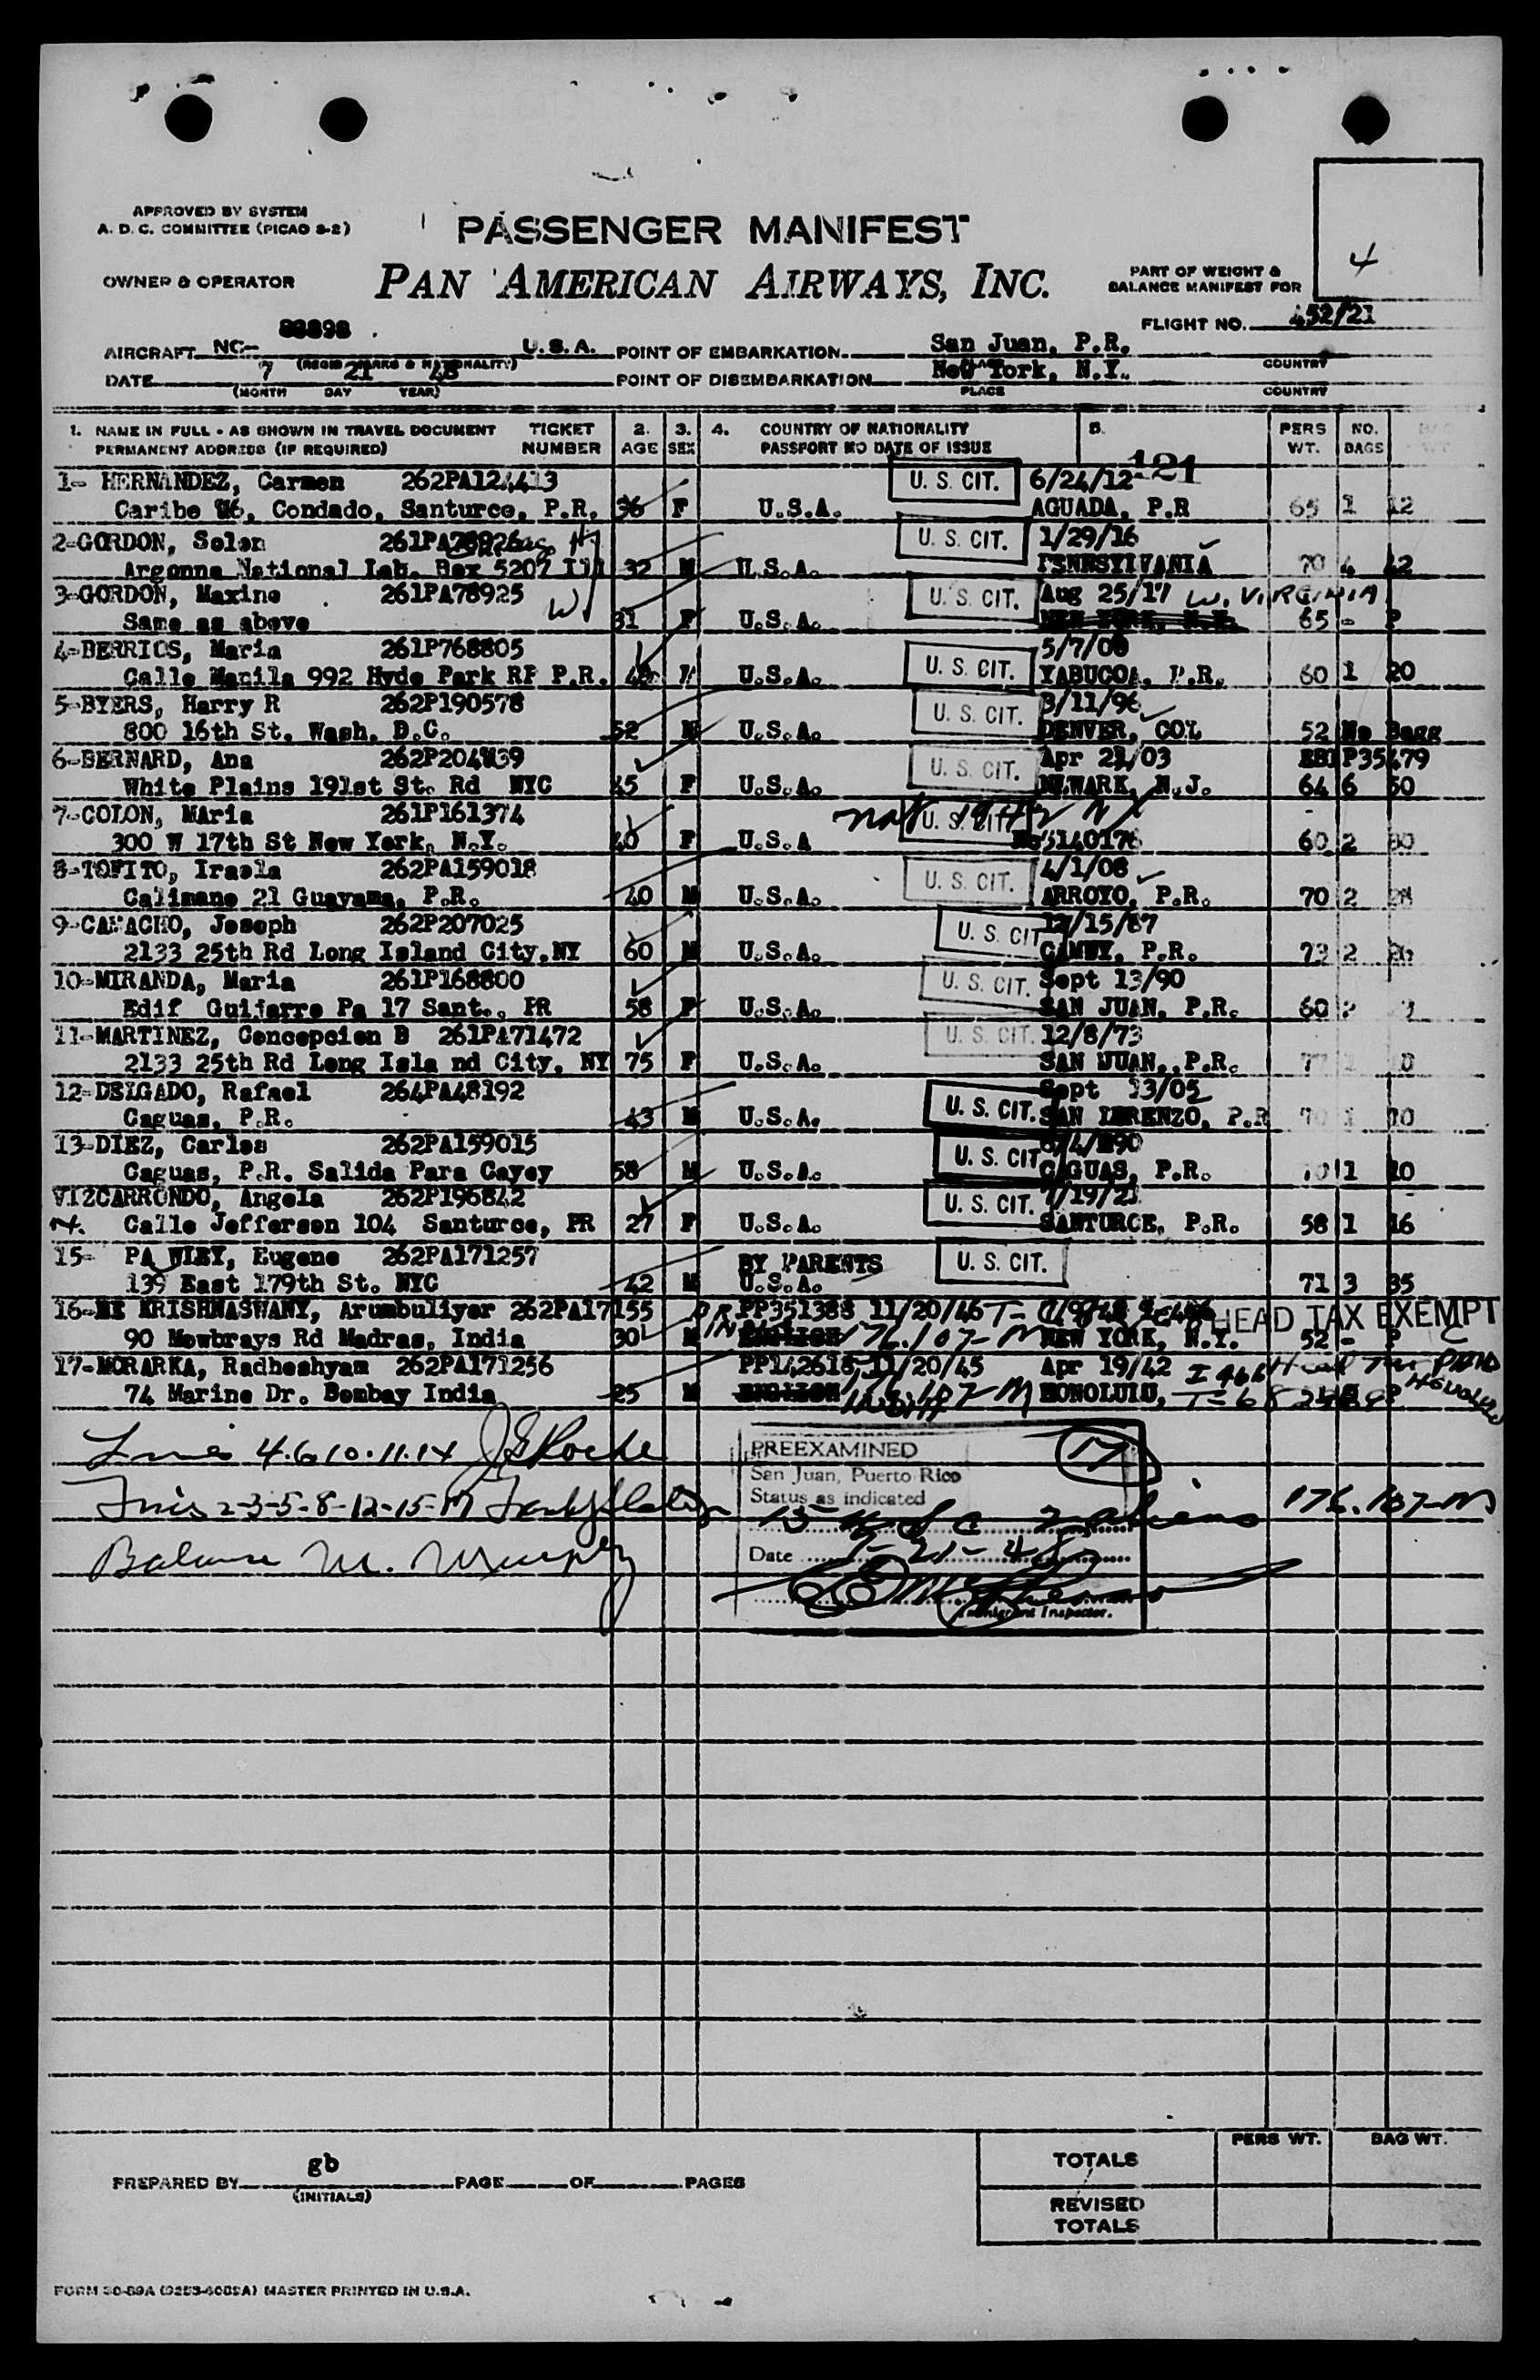 APPROVED BY SYSTEM
A. D. C. COMMITTEE (PICAO S-2)
PASSENGER MANIFEST
OWNER & OPERATOR
PAN AMERICAN AIRWAYS, INC.
PART OF WEIGHT &
BALANCE MANIFEST FOR
4
FLIGHT NO. 452/21
AIRCRAFT NC- 88898 U.S.A. POINT OF EMBARKATION San Juan, P.R.
(REGIS MARKS & NATIONALITY) PLACE COUNTRY
DATE 7 21 48 POINT OF DISEMBARKATION New York, N.Y.
(MONTH DAY YEAR) PLACE COUNTRY
1. NAME IN FULL - AS SHOWN IN TRAVEL DOCUMENT TICKET 2. 3. 4. COUNTRY OF NATIONALITY 5. PERS NO.
PERMANENT ADDRESS (IF REQUIRED) NUMBER AGE SEX PASSPORT NO DATE OF ISSUE WT. BAGS
121
1- HERNANDEZ, Carmen 262PA124413 U. S. CIT. 6/24/12
Caribe #6, Condado, Santurce, P.R. 36 F U.S.A. AGUADA, P.R 65 1 12
2-GORDON, Solon U. S. CIT. 1/29/16
Argonne National Lab. Box 5207 Ill 32 M U.S.A. PENNSYLVANIA 70 4 42
3-GORDON, Maxine 261PA78925 W U. S. CIT. Aug 25/17 W. VIRGINIA
Same as above 31 F U.S.A. 65 - P
4-BERRIOS, Maria 261P768805 U. S. CIT. 5/7/00
Calle Manila 992 Hyde Park RP P.R. U.S.A. YABUCOA, P.R. 60 1 20
5-BYERS, Harry R 262P190578 U. S. CIT. 3/11/96
800 16th St. Wash. D.C. 52 M U.S.A. DENVER, COL 52 No Bagg
6-BERNARD, Ana U. S. CIT. EBT P35479
White Plains 191st St. Rd NYC 45 F U.S.A. NEWARK, N.J. 64 6 50
7-COLON, MAria 261P161374 U. S. CIT.
300 W 17th St New York, N.Y. 40 F U.S.A No5140176 60 2
8-TOFITO, Iraela 262PA159018 U. S. CIT. 4/1/08
Calimano 21 Guayama, P.R. 40 M U.S.A. ARROYO, P.R. 70 2 28
9-CAMACHO, Joseph 262P207025 U. S. CIT. 12/15/87
2133 25th Rd Long Island City,NY 60 M U.S.A. CAMUY, P.R. 73 2
10-MIRANDA, Maria 261P168800 U. S. CIT. Sept 13/90
Edif Guijarro Pa 17 Sant., PR 58 F U.S.A. SAN JUAN, P.R. 60
11-MARTINEZ, Concepcion B 261PA71472 U. S. CIT. 12/8/73
2133 25th Rd Long Isla nd City, NY 75 F U.S.A. SAN JUAN, P.R.
12-DELGADO, Rafael 264PA48192 U. S. CIT. Sept 13/05
Caguas, P.R. 43 M U.S.A. SAN LORENZO, P.R 70 1 10
13-DIEZ, Carlos 262PA159015 U. S. CIT.
Caguas, P.R. Salida Para Cayey 58 M U.S.A. CAGUAS, P.R. 70 1 10
VIZCARRONDO, Angela 262P196842 U. S. CIT. 7/19/21
14. Calle Jefferson 104 Santurce, PR 27 F U.S.A. SANTURCE, P.R. 58 1 16
15- PA WIEY, Eugene 262PA171257 BY PARENTS U. S. CIT.
139 East 179th St. NYC 42 M U.S.A. 71 3 35
KRISHNASWAMY, Arumbuliyar 262PA17155 PP351388 11/20/46 HEAD TAX EXEMPT
90 Mowbrays Rd Madras, India 30 M 176.107-M NEW YORK, N.Y. 52 - P
17-MORARKA, Radheshyam 262PA171256 PP142615 11/20/45 Apr 19/42 I 466 Head Tax PAID
74 Marine Dr. Bombay India 25 M HONOLULU, HONOLULU
Lines 4.6.10.11.14
PREEXAMINED 17
San Juan, Puerto Rico
Status as indicated
Lines 2-3-5-8-12-15-17 15 U S C 2 aliens 176.107-M
Date 7-21-48
Balance M. Murphy
Immigrant Inspector.
PERS WT. BAG WT.
TOTALS
PREPARED BY gb PAGE OF PAGES
(INITIALS)
REVISED
TOTALS
FORM 30-89A (9253-6085A) MASTER PRINTED IN U.S.A.